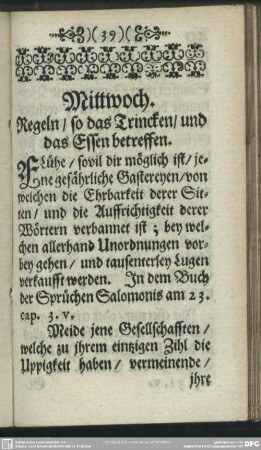 )( 39 )(
Mittwoch.
Regeln / so das Trincken / und
das Essen betreffen.
FLühe / sovil dir möglich ist / je-
ne gefährliche Gastereyen / von
welchen die Ehrbarkeit derer Sit-
ten / und die Auffrichtigkeit derer
Wörtern verbannet ist ; bey wel-
chen allerhand Unordnungen vor-
bey gehen / und tausenterley Lugen
verkaufft werden. In dem Buch
der Sprüchen Salomonis am 23.
cap. 3. v.
Meide jene Gesellschafften /
welche zu jhrem eintzigen Zihl die
Uppigkeit haben / vermeinende /
jhre
DFG